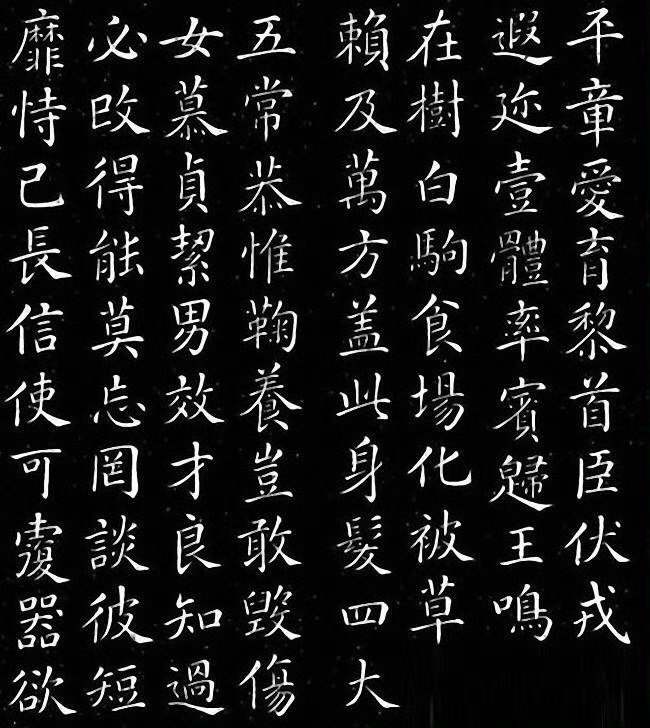 平章愛育黎首臣伏戎
遐迩壹體率賓歸王鳴
在樹白駒食場化被草
賴及萬方盖此身髮四大
五常恭惟鞠養豈敢毀傷
女慕貞絜男效才良知過
必改得能莫忘罔談彼短
靡恃己長信使可覆器欲